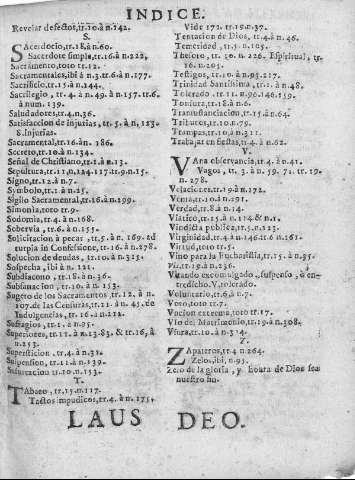 INDICE.
Revelar defectos, tr.10.à n.142.
S.
SAcerdocio, tr.18.à n.60.
Sacerdote simple, tr.16.à n.222.
Sacramento, toto tr.12.
Sacramentales, ibi à n.3. tr.6.à n.177.
Sacrificio, tr.15.à n.144.
Sacrilegio, tr.4.à n.49.à n.157. tr.6.
à num. 139.
Saludadores, tr.4.n.36.
Satisfaccion de Injurias, tr.5.à n.123.
S.Injurias.
Sacramental, tr.16.àn. 186.
Secreto, tr.10.à n.134.
Señal de Christiano, tr.1.à n.13.
Sepultura, tr.11.n.124.117.tr.9.n.15.
Signo, tr.12.à n.7.
Symbolo, tr.1.à n.25.
Sigilo Sacramental, tr.16.à n.199.
Simonia, toto tr.9.
Sodomia, tr.4.à n.168.
Sobervia, tr.6.à n.155.
Solicitacion à pecar, tr.5.à n.169. ad
turpia in Confessione, tr.16.à n.278.
Solucion de deudas, tr.10.à n.315.
Sospecha, ibi à n.121.
Subdiacono, tr.18.à n.36.
Subsanacion, tr.10.à n.153.
Sugeto de los Sacramentos, tr.12.à n.
107. de las Censuras, tr.11.à n.45. de
Indulgencias, tr.16.à n.212.
Sufragios, tr.1.à n.95.
Superiores, tr.11.à n.13.83. & tr.16.à
n.153.
Supersticion, tr.4.à n.31.
Suspension, tr.11.à n.139.
Susurracion, tr.10.n.153.
T.
TAbaco, tr.15.n.117.
Tactos impudicos, tr.4.à n.175.
Vide 172. tr.19.n.37.
Tentacion de Dios, tr.4.à n.46.
Temeridad, tr.5.n.105.
Thesoro, tr.10.n.226. Espiritual, tr.
16.n.205.
Testigos, tr.10.à n.95.217.
Trinidad Santissima, tr.1.à n.48.
Tolerado, tr.11.n.96.146.159.
Tonsura, tr.18.à n.6.
Transustanciacion, tr.15.à n.64.
Tributos, tr.10.n.79.
Trampas, tr.10.à n.311.
Trabajar en fiestas, tr.4.à n.62.
V.
VAna observancia, tr.4.à n.41.
Vagos, tr.3.à n.59.71. tr.19.
n.278.
Velaciones, tr.19.à n.172.
Venta, tr.10.à n.191.
Verdad, tr.8.à n.14.
Viatico, tr.15.à n.114.& n.1.
Vindicta publica, tr.5.n.123.
Virginidad, tr.4.à n.146.tr.6.n.161.
Virtud, toto tr.5.
Vino para la Eucharistia, tr.15.à n.35.
Vis, tr.19.à n.236.
Vitando excomulgado, suspenso, ò en-
tredicho. V. tolerado.
Voluntario, tr.6.à n.7.
Voto, toto tr.7.
Vocion extrema, toto tr.17.
Vso del Matrimonio, tr.19.à n.308.
Vsura, tr.10.à n.314.
Z.
ZApateros, tr.4.n.264.
Zelos, ibi, n.95.
Zelo de la gloria, y honra de Dios sea
nuestro fin.
LAUS DEO.